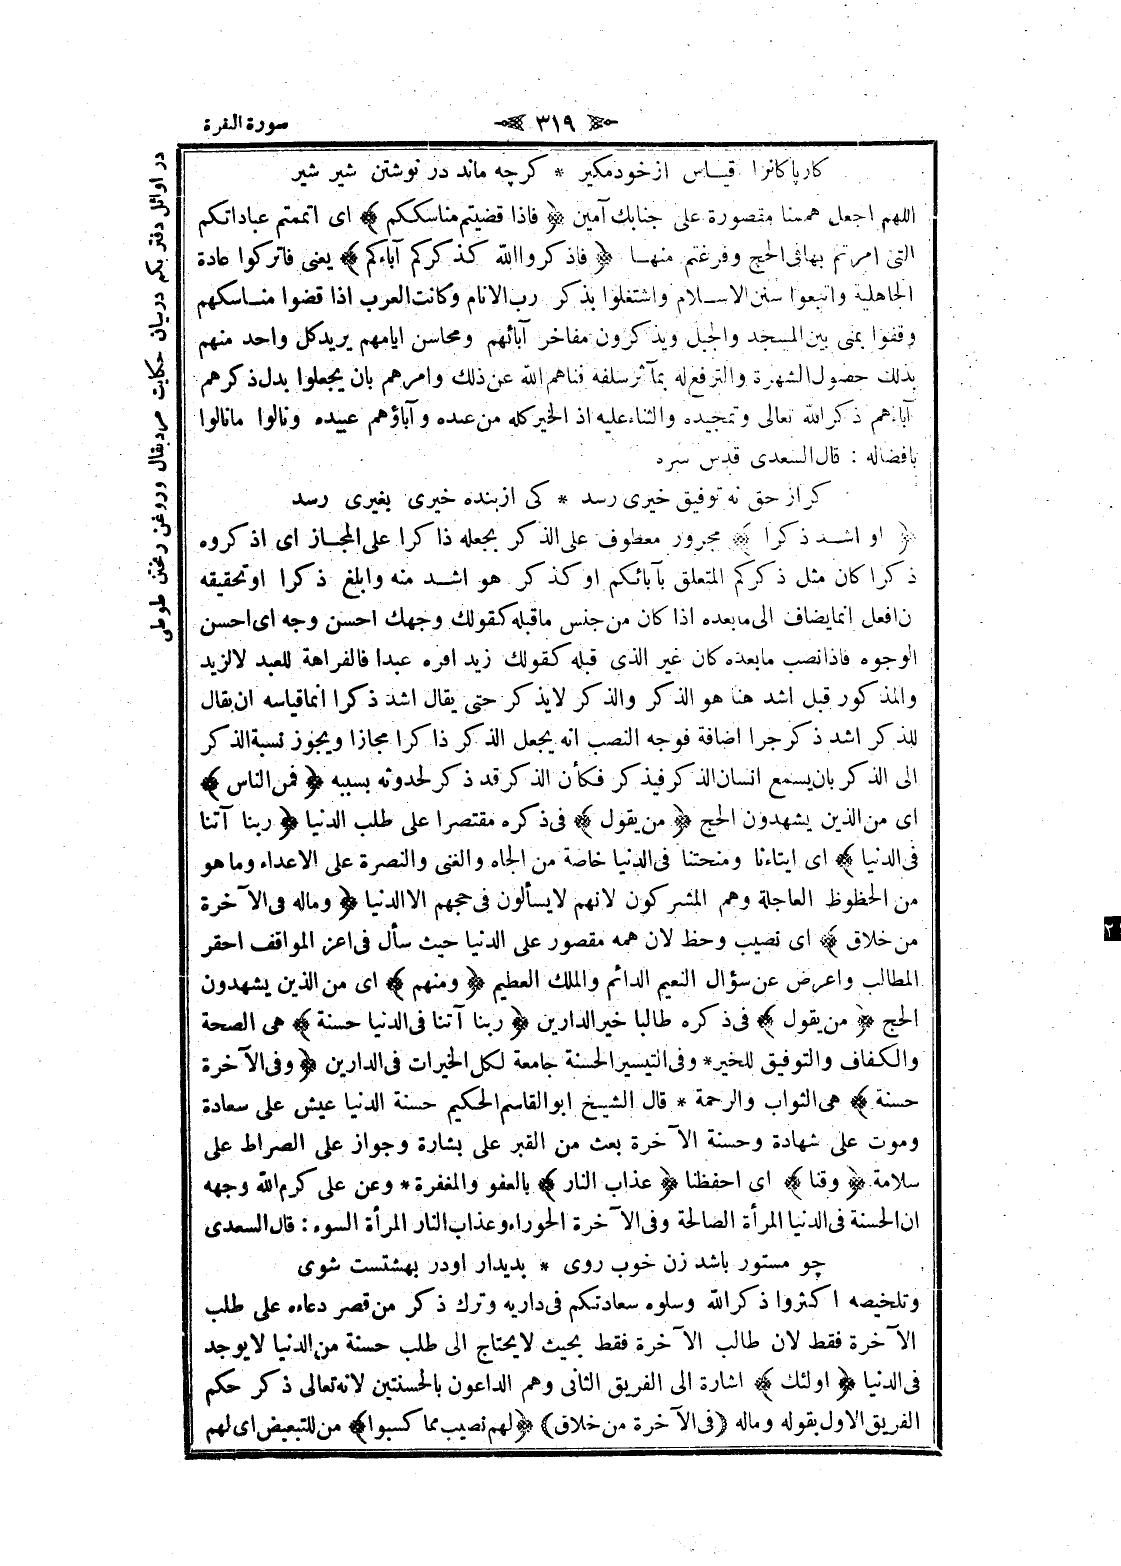 سورة البقرة
٣١٩
كار پاكانرا قياس از خود مكير * كرچه ماند در نوشتن شير شير
اللهم اجعل هممنا مقصورة على جنابك آمين ﴿ فاذا قضيتم مناسككم ﴾ اى اتممتم عباداتكم
التى امرتم بها فى الحج وفرغتم منها ﴿ فاذكروا الله كذكركم آباءكم ﴾ يعنى فاتركوا عادة
الجاهلية واتبعوا سنن الاسلام واشتغلوا بذكر رب الانام وكانت العرب اذا قضوا مناسكهم
وقفوا بمنى بين المسجد والجبل ويذكرون مفاخر آبائهم ومحاسن ايامهم يريد كل واحد منهم
بذلك حصول الشهرة والترفع له بمآثر سلفه فناهم الله عن ذلك وامرهم بان يجعلوا بدل ذكرهم
آباءهم ذكر الله تعالى وتمجيده والثناء عليه اذ الخير كله من عنده وآباؤهم عبيده ونالوا مانالوا
بافضاله : قال السعدى قدس سره
كر از حق نه توفيق خيرى رسد * كى از بنده خيرى بغيرى رسد
﴿ او اشد ذكرا ﴾ مجرور معطوف على الذكر بجعله ذاكرا على المجاز اى اذكروه
ذكرا كان مثل ذكركم المتعلق بآبائكم او كذكر هو اشد منه وابلغ ذكرا او تحقيقه
ن افعل انما يضاف الى ما بعده اذا كان من جنس ماقبله كقولك وجهك احسن وجه اى احسن
الوجوه فاذا نصب مابعده كان غير الذى قبله كقولك زيد افره عبدا فالفراهة للعبد لالزيد
والمذكور قبل اشد هنا هو الذكر والذكر لايذكر حتى يقال اشد ذكرا انما قياسه ان يقال
للذكر اشد ذكر جرا اضافة فوجه النصب انه يجعل الذكر ذاكرا مجازا ويجوز نسبة الذكر
الى الذكر بان يسمع انسان الذكر فيذكر فكأن الذكر قد ذكر لحدوثه بسببه ﴿ فمن الناس ﴾
اى من الذين يشهدون الحج ﴿ من يقول ﴾ فى ذكره مقتصرا على طلب الدنيا ﴿ ربنا آتنا
فى الدنيا ﴾ اى ايتاءنا ومنحتنا فى الدنيا خاصة من الجاه والغنى والنصرة على الاعداء وما هو
من الحظوظ العاجلة وهم المشركون لانهم لايسألون فى حجهم الا الدنيا ﴿ وماله فى الآخرة
من خلاق ﴾ اى نصيب وحظ لان همه مقصور على الدنيا حيث سأل فى اعز المواقف احقر
المطالب واعرض عن سؤال النعيم الدائم والملك العظيم ﴿ ومنهم ﴾ اى من الذين يشهدون
الحج ﴿ من يقول ﴾ فى ذكره طالبا خير الدارين ﴿ ربنا آتنا فى الدنيا حسنة ﴾ هى الصحة
والكفاف والتوفيق للخير * وفى التيسير الحسنة جامعة لكل الخيرات فى الدارين ﴿ وفى الآخرة
حسنة ﴾ هى الثواب والرحمة * قال الشيخ ابو القاسم الحكيم حسنة الدنيا عيش على سعادة
وموت على شهادة وحسنة الآخرة بعث من القبر على بشارة وجواز على الصراط على
سلامة ﴿ وقنا ﴾ اى احفظنا ﴿ عذاب النار ﴾ بالعفو والمغفرة * وعن على كرم الله وجهه
ان الحسنة فى الدنيا المرأة الصالحة وفى الآخرة الحوراء وعذاب النار المرأة السوء : قال السعدى
چو مستور باشد زن خوب روى * بديدار او در بهشتست شوى
وتلخيصه اكثروا ذكر الله وسلوه سعادتكم فى داريه وترك ذكر من قصر دعاءه على طلب
الآخرة فقط لان طالب الآخرة فقط بحيث لايحتاج الى طلب حسنة من الدنيا لايوجد
فى الدنيا ﴿ اولئك ﴾ اشارة الى الفريق الثانى وهم الداعون بالحسنتين لانه تعالى ذكر حكم
الفريق الاول بقوله وماله (فى الآخرة من خلاق) ﴿ لهم نصيب مما كسبوا ﴾ من للتبعيض اى لهم
در اوائل دفتر يكم در بيان حكايت مرد بقال وروغن ريختن طوطى
٢